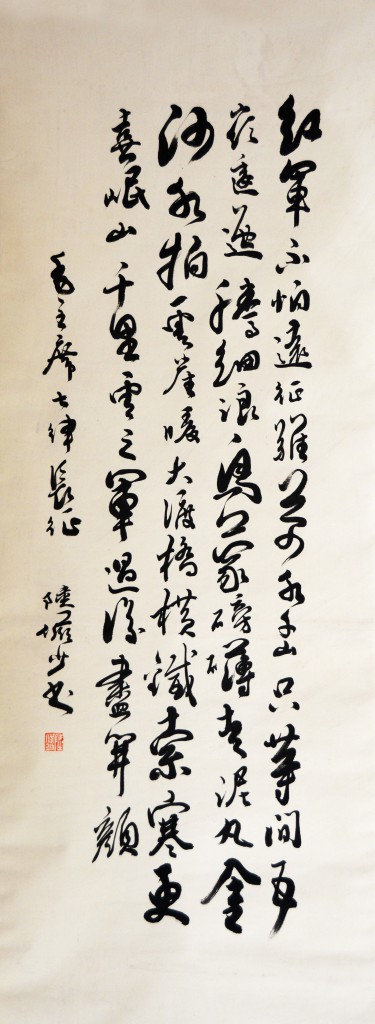 紅軍不怕遠征難萬水千山只等閒五
嶺逶迤騰細浪烏蒙磅礴走泥丸金
沙水拍雲崖暖大渡橋橫鐵索寒更
喜岷山千里雪三軍過後盡開顏
毛主席七律長征 陸儼少書